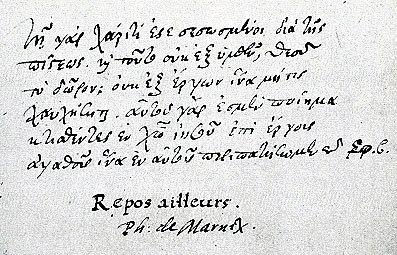 Τῇ γὰρ χάριτί ἐστε σεσωσμένοι διὰ τῆς
πίστεως. καὶ τοῦτο οὐκ ἐξ ὑμῶν, Θεοῦ
τὸ δῶρον· οὐκ ἐξ ἔργων ἵνα μή τις
καυχήσηται. αὐτοῦ γάρ ἐσμεν ποίημα
κτισθέντες ἐν χῶ ἰησοῦ ἐπὶ ἔργοις
ἀγαθοῖς ἵνα ἐν αὐτοῖς περιπατήσωμεν
Repos ailleurs.
Ph. de Marnix.